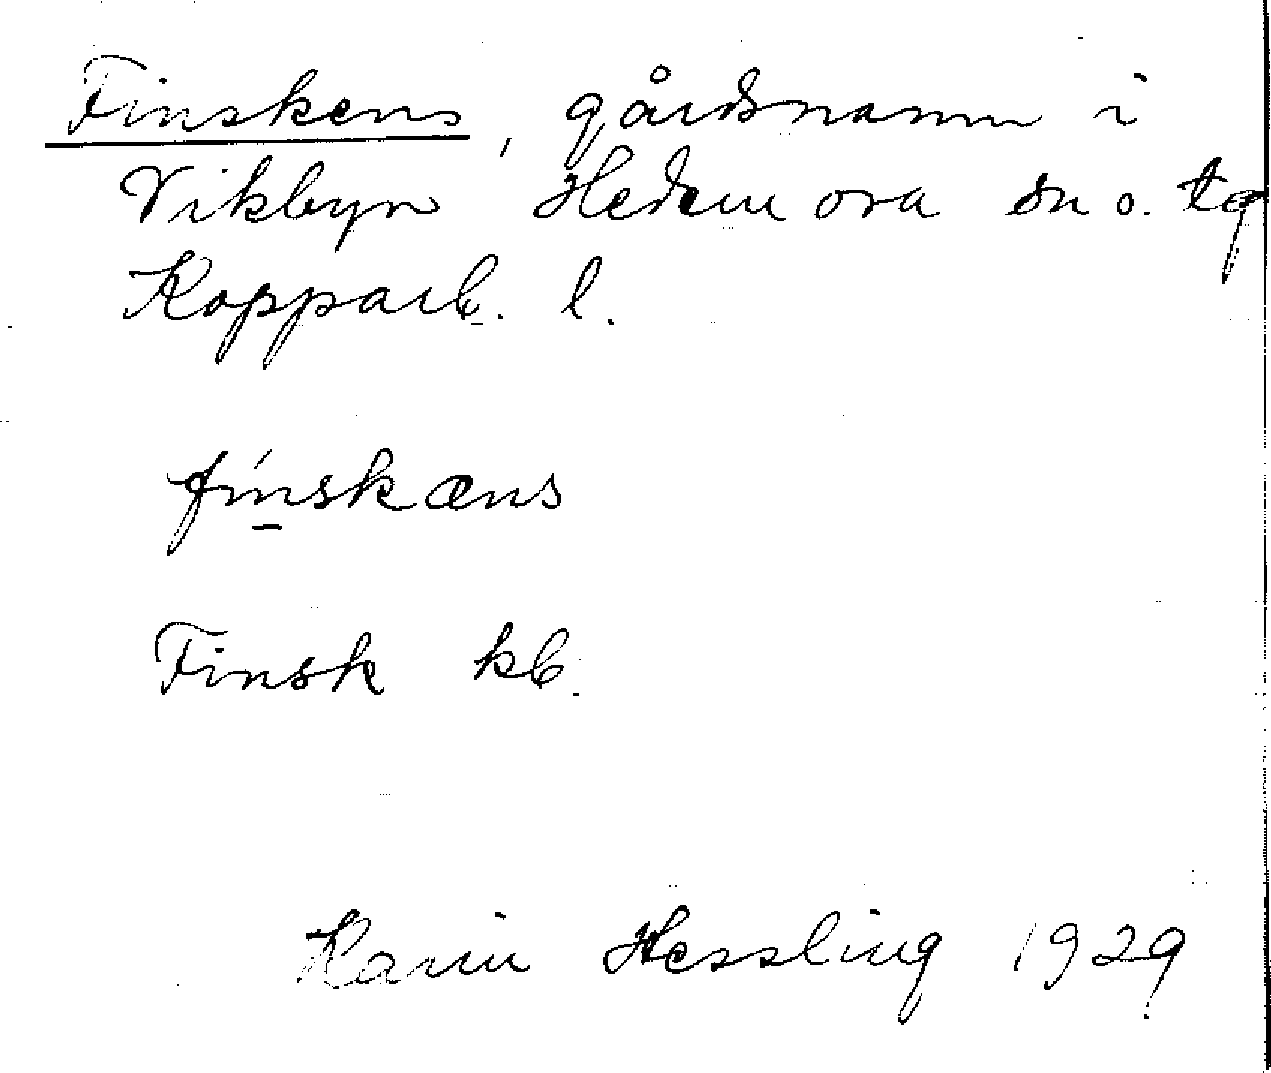 Finskens, gårdsnamn i
Vikbyn Hedemora sn o. tg
Kopparb. l.
fı́nskæns
Finsk kb.
Karin Hessling 1929